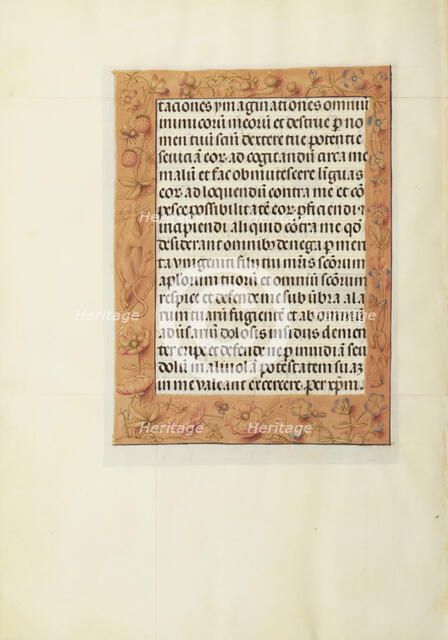 taciones ymaginationes omniu
mimicoru meoru et destrue p no
men tuu scm dextere tue potentie
seuicia eor ad cogitandu circa me
malu et fac obmutescere linguas
eor ad loquendu contra me et co
pesce possibilitate eor pficiendi
incipiendi aliquid contra me qd
desiderant omnibz denega p men
ta vigenti fun tuimus scoru
aplorum tuoru et omniu scoru
respice et defende me sub umbra ala
rum tuaru fugiente et ab omnibus
aduersariu dolosis insidiis clemen
ter eripe et defende ne p inuidia seu
dolu maliuola potestatem sua
in me valeant exercere per xpm
Heritage
Heritage
Heritage
Heritage
Heritage
Heritage
Heritage